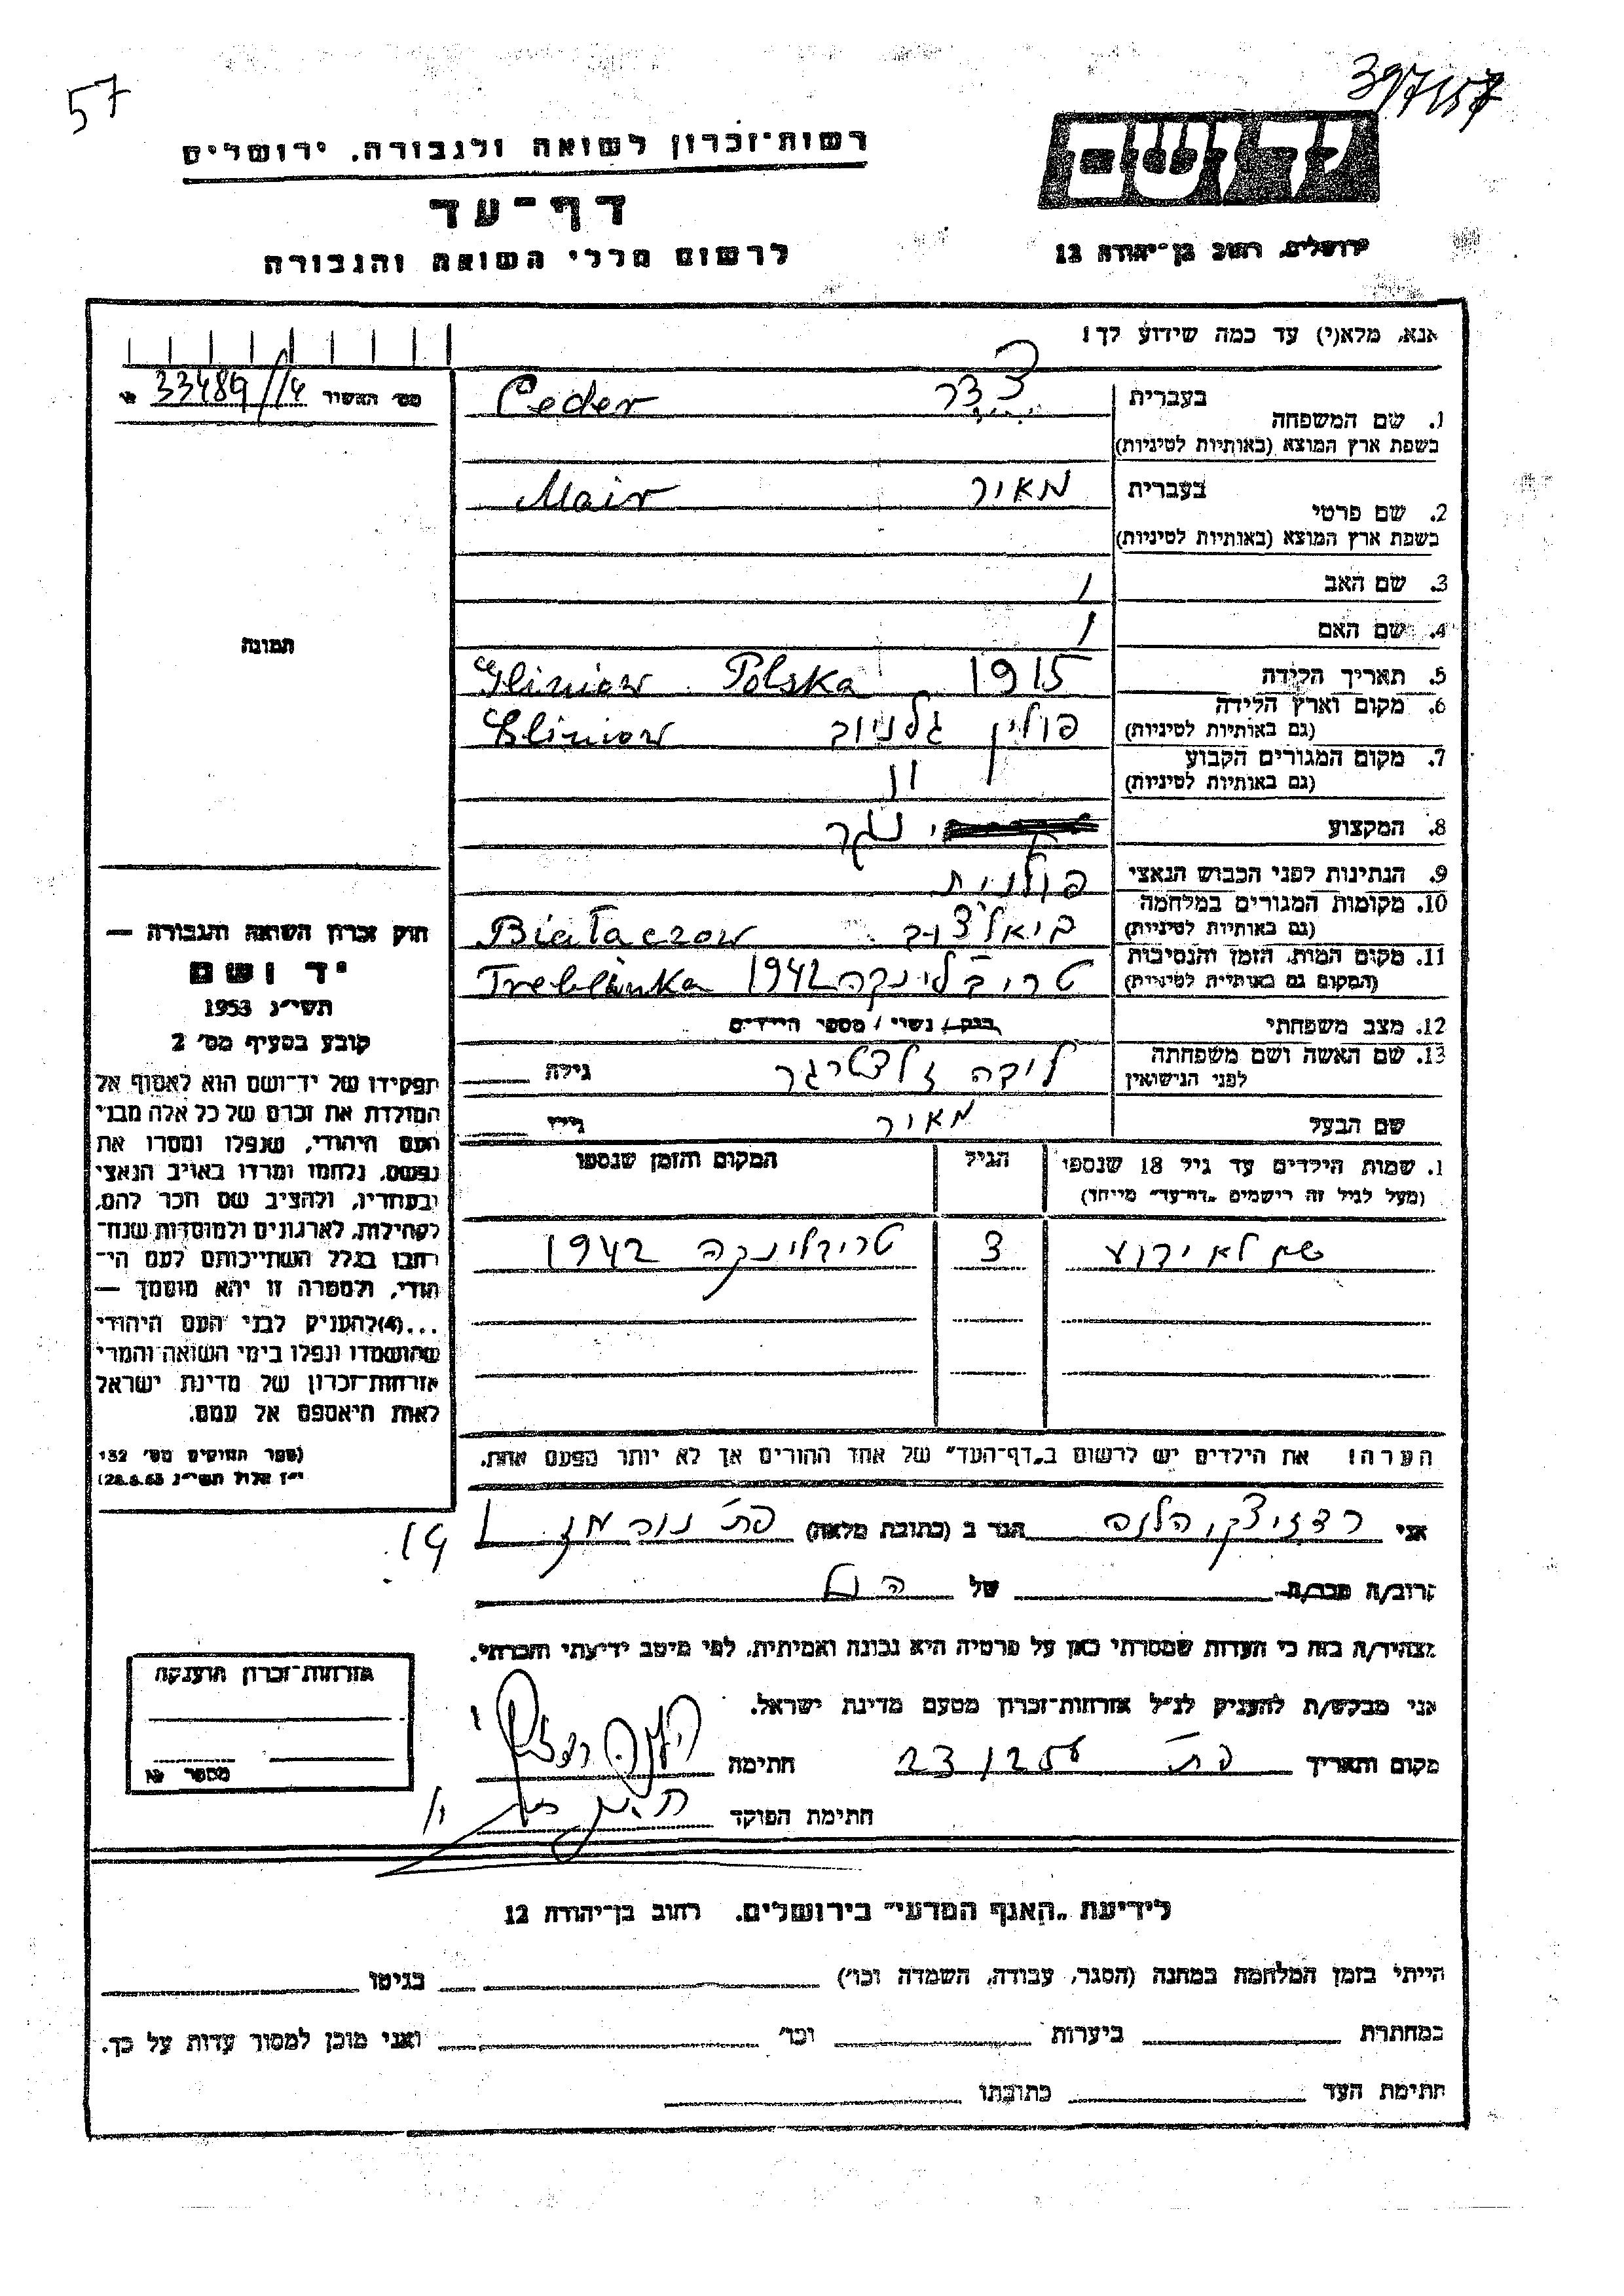 57
397/157
רשות־זכרון לשואה ולגבורה, ירושלים
יד ושם
דף־עד
לרשום חללי השואה והגבורה
ירושלים, רחוב בן־יהודה 12
אנא, מלא(י) עד כמה שידוע לך!
מס׳ האשור № 33489/14
1. שם המשפחה
בעברית צדר Ceder
בשפת ארץ המוצא (באותיות לטיניות)
2. שם פרטי
בעברית מאיר Mair
בשפת ארץ המוצא (באותיות לטיניות)
3. שם האב /
4. שם האם /
5. תאריך הלידה 1915 Polska Gliniow
6. מקום וארץ הלידה
(גם באותיות לטיניות) פולין גלניוב Gliniow
7. מקום המגורים הקבוע
(גם באותיות לטיניות) "
8. המקצוע נגר
9. הנתינות לפני הכבוש הנאצי פולנית
10. מקומות המגורים במלחמה
(גם באותיות לטיניות) ביאלצוב Białaczow
11. מקום המות, הזמן והנסיבות
(המקום גם באותיות לטיניות) טריבלינקה 1942 Treblinka
12. מצב משפחתי רווק / נשוי / מספר הילדים
13. שם האשה ושם משפחתה
לפני הנישואין גילה
שם הבעל מאיר גילו
1. שמות הילדים עד גיל 18 שנספו
(מעל לגיל זה רישמים "דף־עד" מייחד)
הגיל
המקום והזמן שנספו
שם לא ידוע 3 טריבלינקה 1942
הערה! את הילדים יש לרשום ב„דף־העד" של אחד ההורים אך לא יותר מפעם אחת.
תמונה
חוק זכרון השואה והגבורה —
יד ושם
תשי״ג 1953
קובע בסעיף מס׳ 2
תפקידו של יד־ושם הוא לאסוף אל
המולדת את זכרם של כל אלה מבני
העם היהודי, שנפלו ומסרו את
נפשם, נלחמו ומרדו באויב הנאצי
ובעוזריו, ולהציב שם וזכר להם,
לקהילות, לארגונים ולמוסדות שנח־
רבו בגלל השתייכותם לעם הי־
הודי, ולמטרה זו יהא מוסמך —
...(4)להעניק לבני העם היהודי
שהושמדו ונפלו בימי השואה והמרי
אזרחות־זכרון של מדינת ישראל
לאות היאספם אל עמם.
(ספר החוקים מס׳ 132
י״ז אלול תשי״ג 28.8.53)
אני רדזיצקי הלנה הגר ב (כתובת מלאה) פת נורמן 19
קרוב/ה מכר/ה של הנ״ל
מצהיר/ה בזה כי העדות שמסרתי כאן על פרטיה היא נכונה ואמיתית, לפי מיטב ידיעתי והכרתי.
אני מבקש/ת להעניק לנ״ל אזרחות־זכרון מטעם מדינת ישראל.
מקום ותאריך פת 23/2 חתימה
חתימת הפוקד
אזרחות־זכרון הוענקה
מספר №
לידיעת „האגף המדעי" בירושלים, רחוב בן־יהודה 12
הייתי בזמן המלחמה במחנה (הסגר, עבודה, השמדה וכו׳) בגיטו
במחתרת ביערות וכו׳ ואני מוכן למסור עדות על כך.
חתימת העד כתובתו